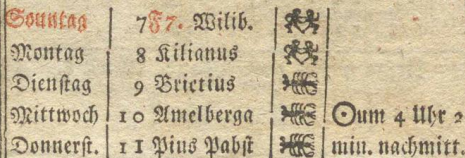 Sonntag 7 F 7. Wilib.
Montag 8 Kilianus
Dienſtag 9 Brictius
Mittwoch 10 Amelberga ☉um 4 Uhr 2
Donnerſt. 11 Pius Pabſt min. nachmitt.